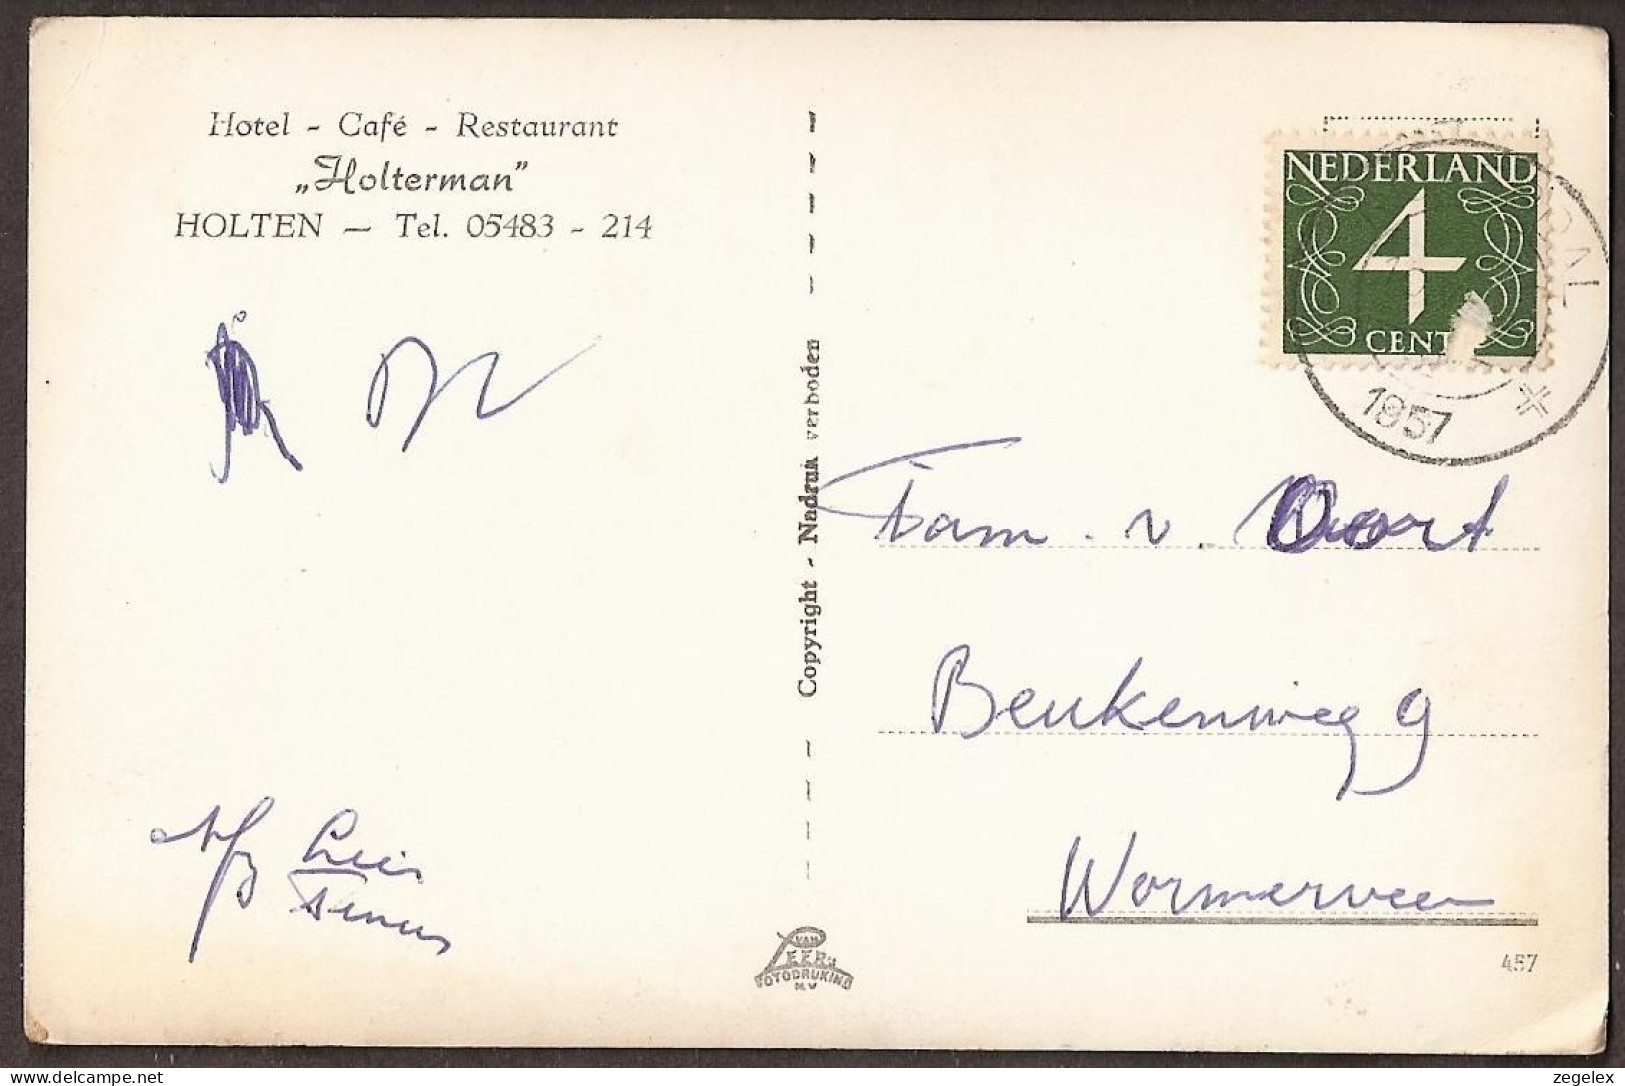 Hotel - Café - Restaurant
„Holterman”
HOLTEN — Tel. 05483 - 214
Copyright - Nadruk verboden
NEDERLAND
4
CENT
1957
Fam. v. Oort
Beukenweg 9
Wormerveen
VAN
LEER's
FOTODRUKIND
N.V
457
zegelex